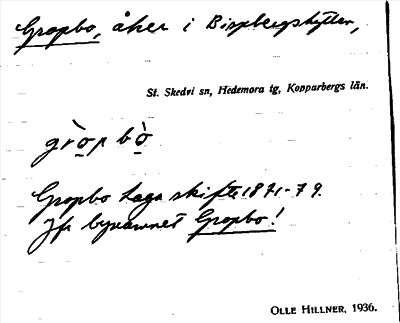 Gropbo, åker i Bispbergshyttan,
St. Skedvi sn, Hedemora tg, Kopparbergs län.
gròp bò
Gropbo Laga skifte 1871-79.
Jfr bynamnet Gropbo!
OLLE HILLNER, 1936.